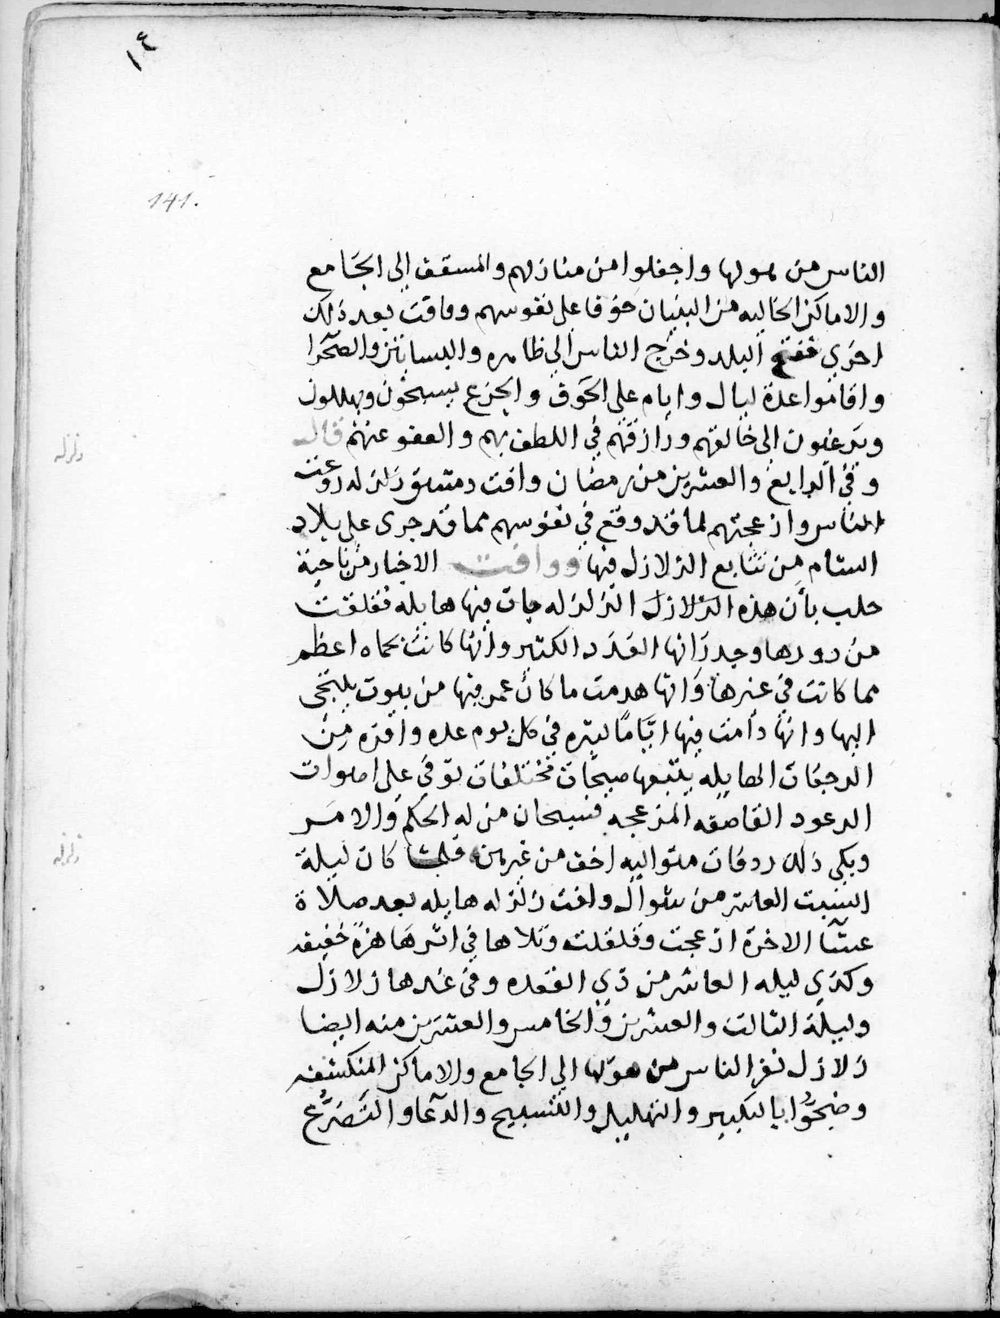 ١٤
141.
الناس من هولها واجفلوا من منازلهم والمسقف الى الجامع
والاماكن الخاليه من البنيان خوفا على نفوسهم ووافت بعد ذلك
اخرى ففتح البلد وخرج الناس الى ظاهره والبساتين والصحرا
واقاموا عدة ليال وايام على الخوف والجزع يسبحون ويهللون
ويرغبون الى خالقهم ورازقهم في اللطف بهم والعفو عنهم قال
زلزله
وفي الرابع والعشرين من رمضان وافت دمشق زلزله روعت
الناس وازعجتهم لما قد وقع في نفوسهم مما قد جرى على بلاد
الشام من تتابع الزلازل فيها ووافت الاخبار من ناحية
حلب بأن هذه الزلازل الزلزله جات فيها هايله فقلقلت
من دورها وجدرانها العدد الكثير وانها كانت بحماه اعظم
مما كانت في غيرها وانها هدمت ما كان عمر فيها من بيوت يلتجى
اليها وانها دامت فيها اياما كثيره في كل يوم عده وافره من
الرجفات الهايله يتبعها صيحات مختلفات توفي على اصوات
الرعود القاصفه المزعجه فسبحان من له الحكم والامر
زلزله
وتلى ذلك ردفات متواليه اخف من غيرهن فلما كان ليلة
السبت العاشر من شوال وافت زلزله هايله بعد صلاة
عشآ الاخرة ازعجت وقلقلت وتلاها في اثرها هزة خفيفه
وكذى ليله العاشر من ذي القعده وفي غدها زلازل
وليلة الثالث والعشرين والخامس والعشرين منه ايضا
زلازل نفر الناس من هولها الى الجامع والاماكن المنكشفه
وضجوا بالتكبير والتهليل والتسبيح والدعا والتضرع